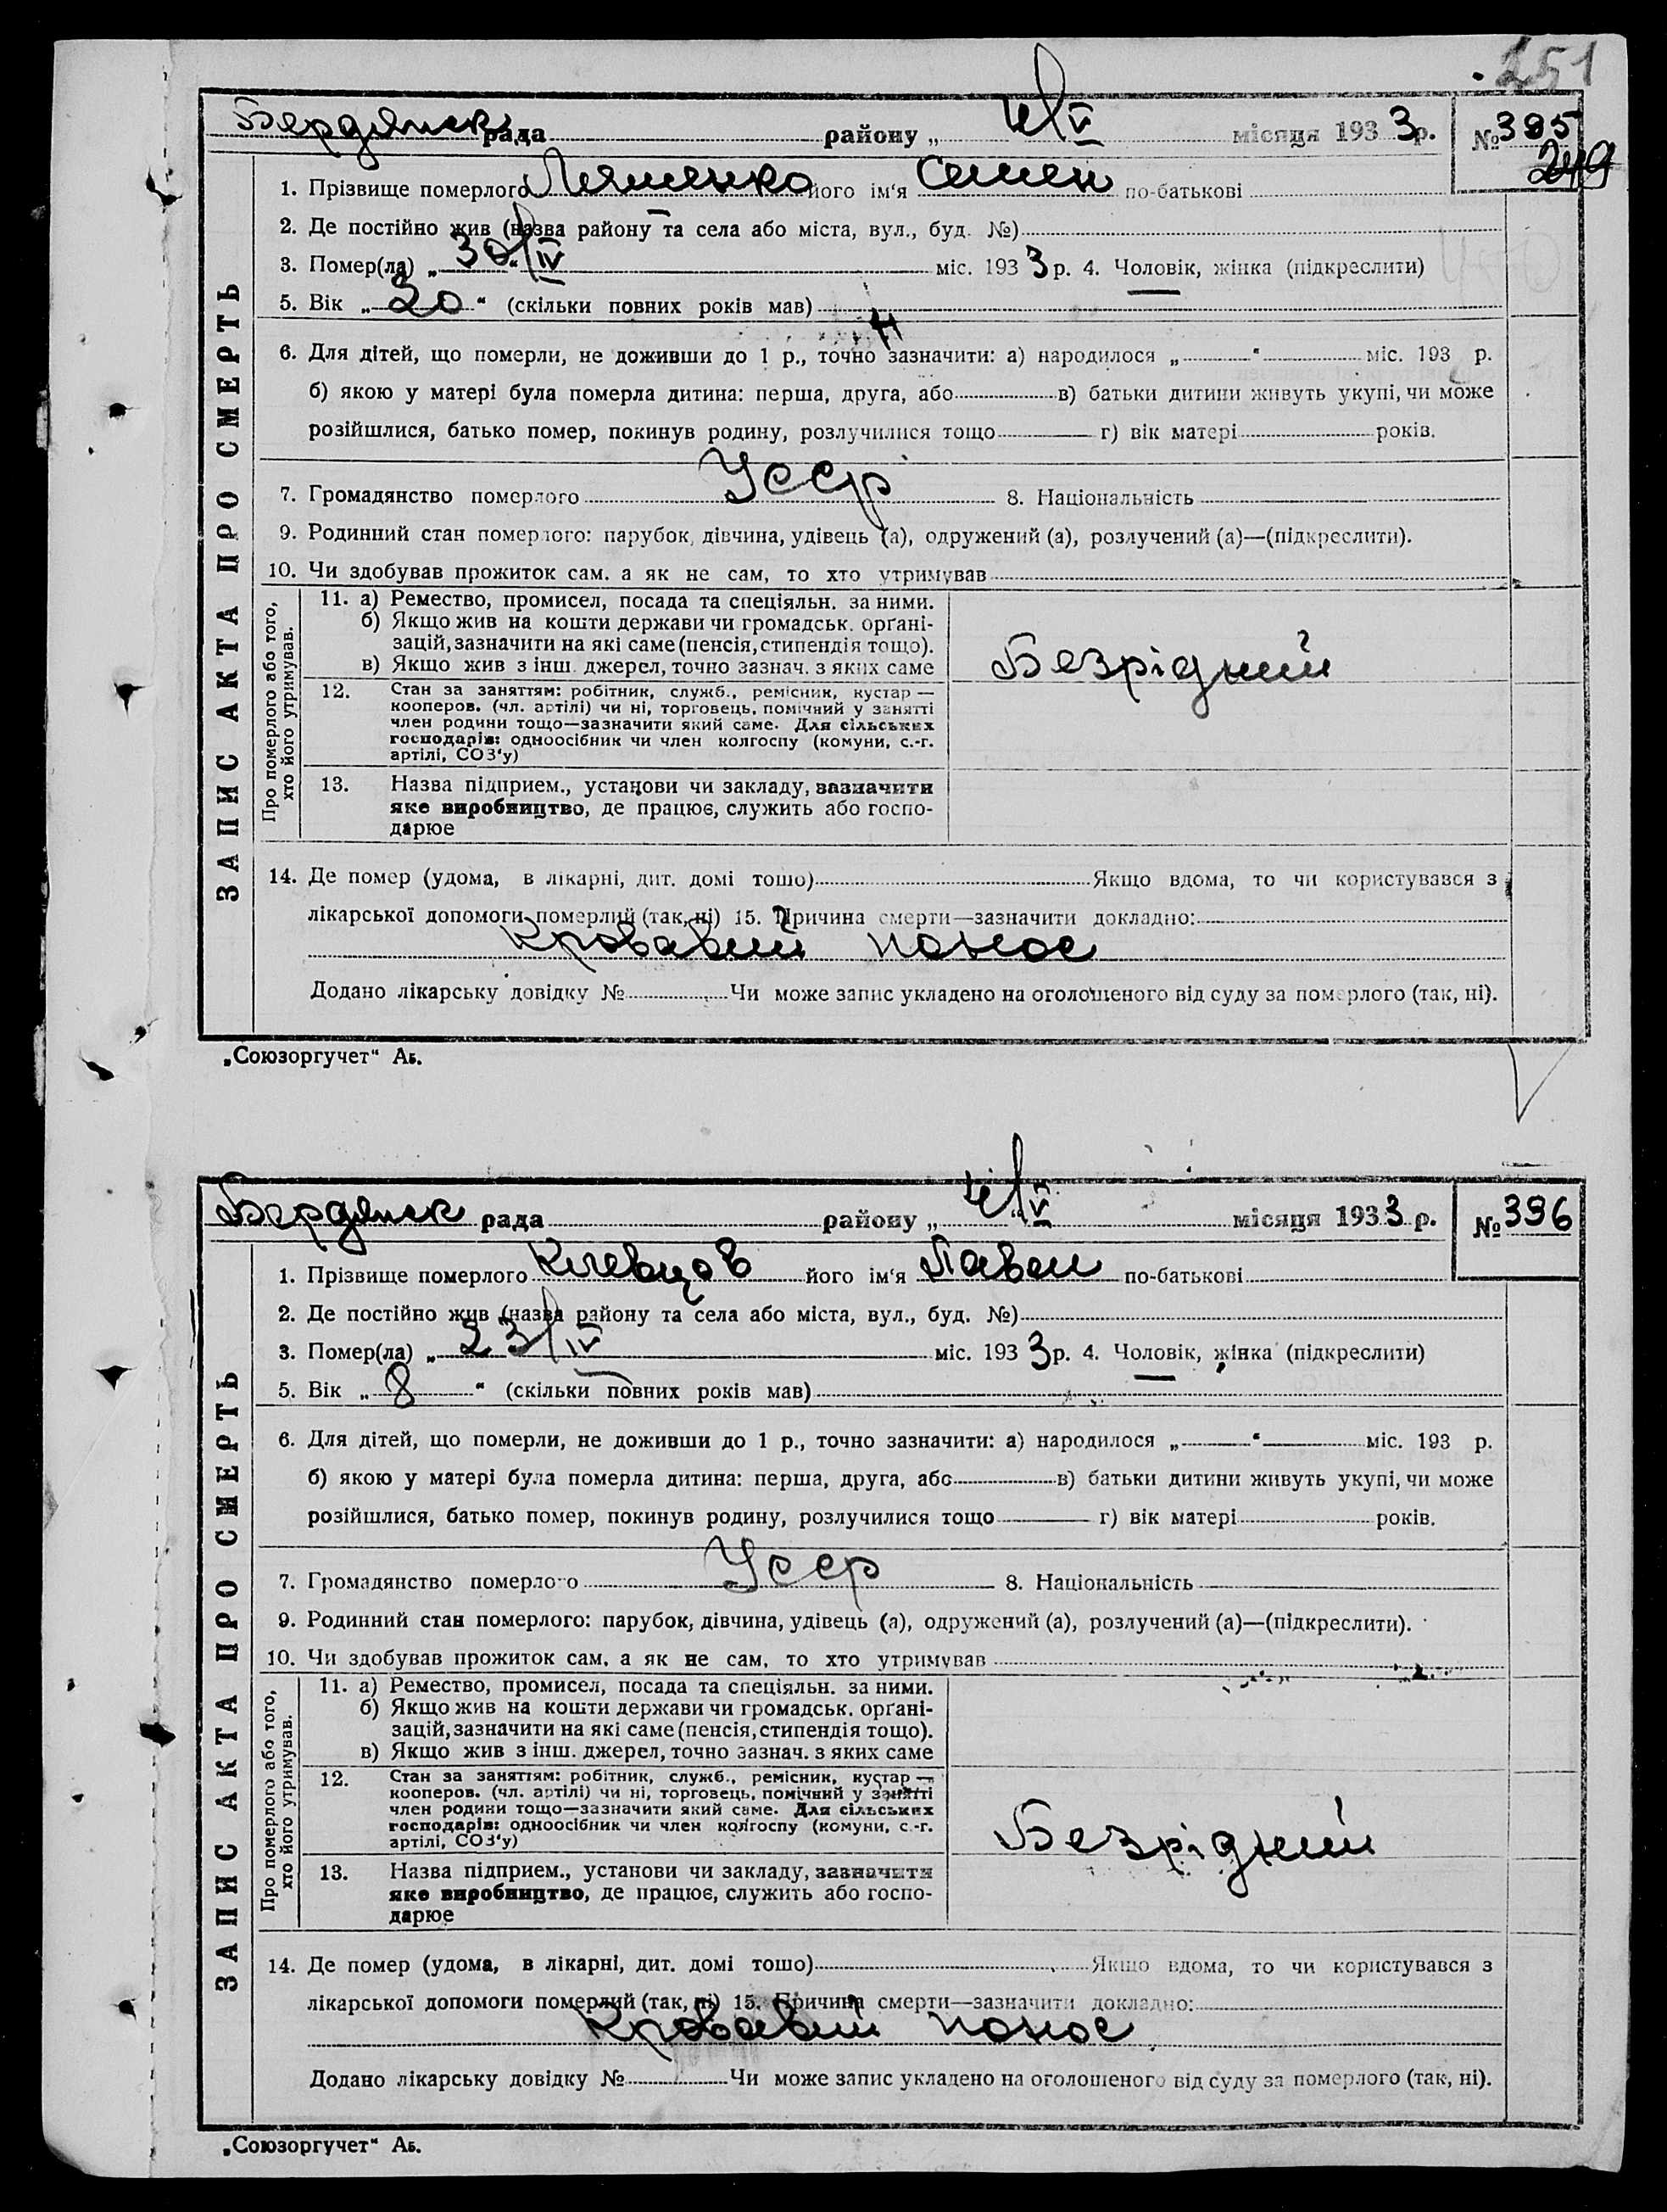 251
Бердянськ рада району „ 4/V місяця 1933 р. № 395
249
1. Прізвище померлого Ляшенко його ім‘я Семен по-батькові
2. Де постійно жив (назва району та села або міста, вул., буд. №)
3. Помер(ла) „ 30 “ IV міс. 1933 р. 4. Чоловік, жінка (підкреслити)
5. Вік „ 30 “ (скільки повних років мав)
6. Для дітей, що померли, не доживши до 1 р., точно зазначити: а) народилося „ “ міс. 193 р.
б) якою у матері була померла дитина: перша, друга, або в) батьки дитини живуть укупі, чи може
розійшлися, батько помер, покинув родину, розлучилися тощо г) вік матері років.
7. Громадянство померлого Усср 8. Національність
9. Родинний стан померлого: парубок, дівчина, удівець (а), одружений (а), розлучений (а)—(підкреслити).
10. Чи здобував прожиток сам, а як не сам, то хто утримував
ЗАПИС АКТА ПРО СМЕРТЬ
Про померлого або того,
хто його утримував.
11. а) Ремество, промисел, посада та спеціяльн. за ними.
б) Якщо жив на кошти держави чи громадськ. орґані-
зацій, зазначити на які саме (пенсія, стипендія тощо).
в) Якщо жив з інш. джерел, точно зазнач. з яких саме
Безрідний
12. Стан за заняттям: робітник, служб., ремісник, кустар —
кооперов. (чл. артілі) чи ні, торговець, помічний у занятті
член родини тощо—зазначити який саме. Для сільських
господарів: одноосібник чи член колгоспу (комуни, с.-г.
артілі, СОЗ‘у)
13. Назва підприєм., установи чи закладу, зазначити
яке виробництво, де працює, служить або госпо-
дарює
14. Де помер (удома, в лікарні, дит. домі тошо) Якщо вдома, то чи користувався з
лікарської допомоги померлий (так, ні) 15. Причина смерти—зазначити докладно:
Кровавий понос
Додано лікарську довідку № Чи може запис укладено на оголошеного від суду за померлого (так, ні).
„Союзоргучет“ Аб.
Бердянськ рада району „ 4/V “ місяця 1933 р. № 396
1. Прізвище померлого Клевцов його ім‘я Павел по-батькові
2. Де постійно жив (назва району та села або міста, вул., буд. №)
3. Помер(ла) „ 23/IV міс. 1933 р. 4. Чоловік, жінка (підкреслити)
5. Вік „ 8 “ (скільки повних років мав)
6. Для дітей, що померли, не доживши до 1 р., точно зазначити: а) народилося „ “ міс. 193 р.
б) якою у матері була померла дитина: перша, друга, або в) батьки дитини живуть укупі, чи може
розійшлися, батько помер, покинув родину, розлучилися тощо г) вік матері років.
7. Громадянство померлого Усср 8. Національність
9. Родинний стан померлого: парубок, дівчина, удівець (а), одружений (а), розлучений (а)—(підкреслити).
10. Чи здобував прожиток сам, а як не сам, то хто утримував
ЗАПИС АКТА ПРО СМЕРТЬ
Про померлого або того,
хто його утримував.
11. а) Ремество, промисел, посада та спеціяльн. за ними.
б) Якщо жив на кошти держави чи громадськ. орґані-
зацій, зазначити на які саме (пенсія, стипендія тощо).
в) Якщо жив з інш. джерел, точно зазнач. з яких саме
12. Стан за заняттям: робітник, служб., ремісник, кустар —
кооперов. (чл. артілі) чи ні, торговець, помічний у занятті
член родини тощо—зазначити який саме. Для сільських
господарів: одноосібник чи член колгоспу (комуни, с.-г.
артілі, СОЗ‘у)
Безрідний
13. Назва підприєм., установи чи закладу, зазначити
яке виробництво, де працює, служить або госпо-
дарює
14. Де помер (удома, в лікарні, дит. домі тошо) Якщо вдома, то чи користувався з
лікарської допомоги померлий (так, ні) 15. Причина смерти—зазначити докладно:
Кровавий понос
Додано лікарську довідку № Чи може запис укладено на оголошеного від суду за померлого (так, ні).
„Союзоргучет“ Аб.